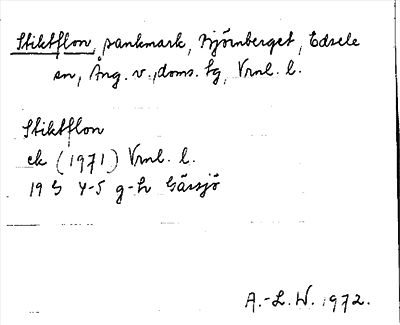 Stiktflon, sankmark, Björnberget, Edsele
sn, Ång. v., doms. sg, Vrnl. l.
Stiktflon
ek (1971) Vrnl. l.
19 G 4-5 g-h Gåssjö
A.-L. W. 1972.